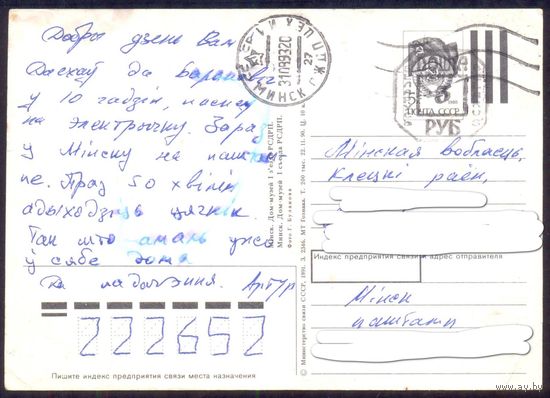 Добры дзень вам!
Даехаў да Баранавіч
у 10 гадзін, паспеў
на электрычку. Зараз
у Мінску на пашта
пе. Праз 50 хвілін
адыходзіць цягнік
Так што амаль ужо
ў сябе дома
Да пабачэння. Артур
222652
Пишите индекс предприятия связи места назначения
Мінск. Дом-музей I з'езда РСДРП.
Минск. Дом-музей I съезда РСДРП.
Фото Г. Булахова
© Министерство связи СССР, 1991. З. 2566. МТ Гознака. Т. 200 тыс. 22.11.90. Ц. 10 к.
МИНСК
ПОЧТА СССР
5
РУБ
Мінская вобласць,
Клецкі раён,
Индекс предприятия связи и адрес отправителя
Мінск
паштамт
www.ay.by